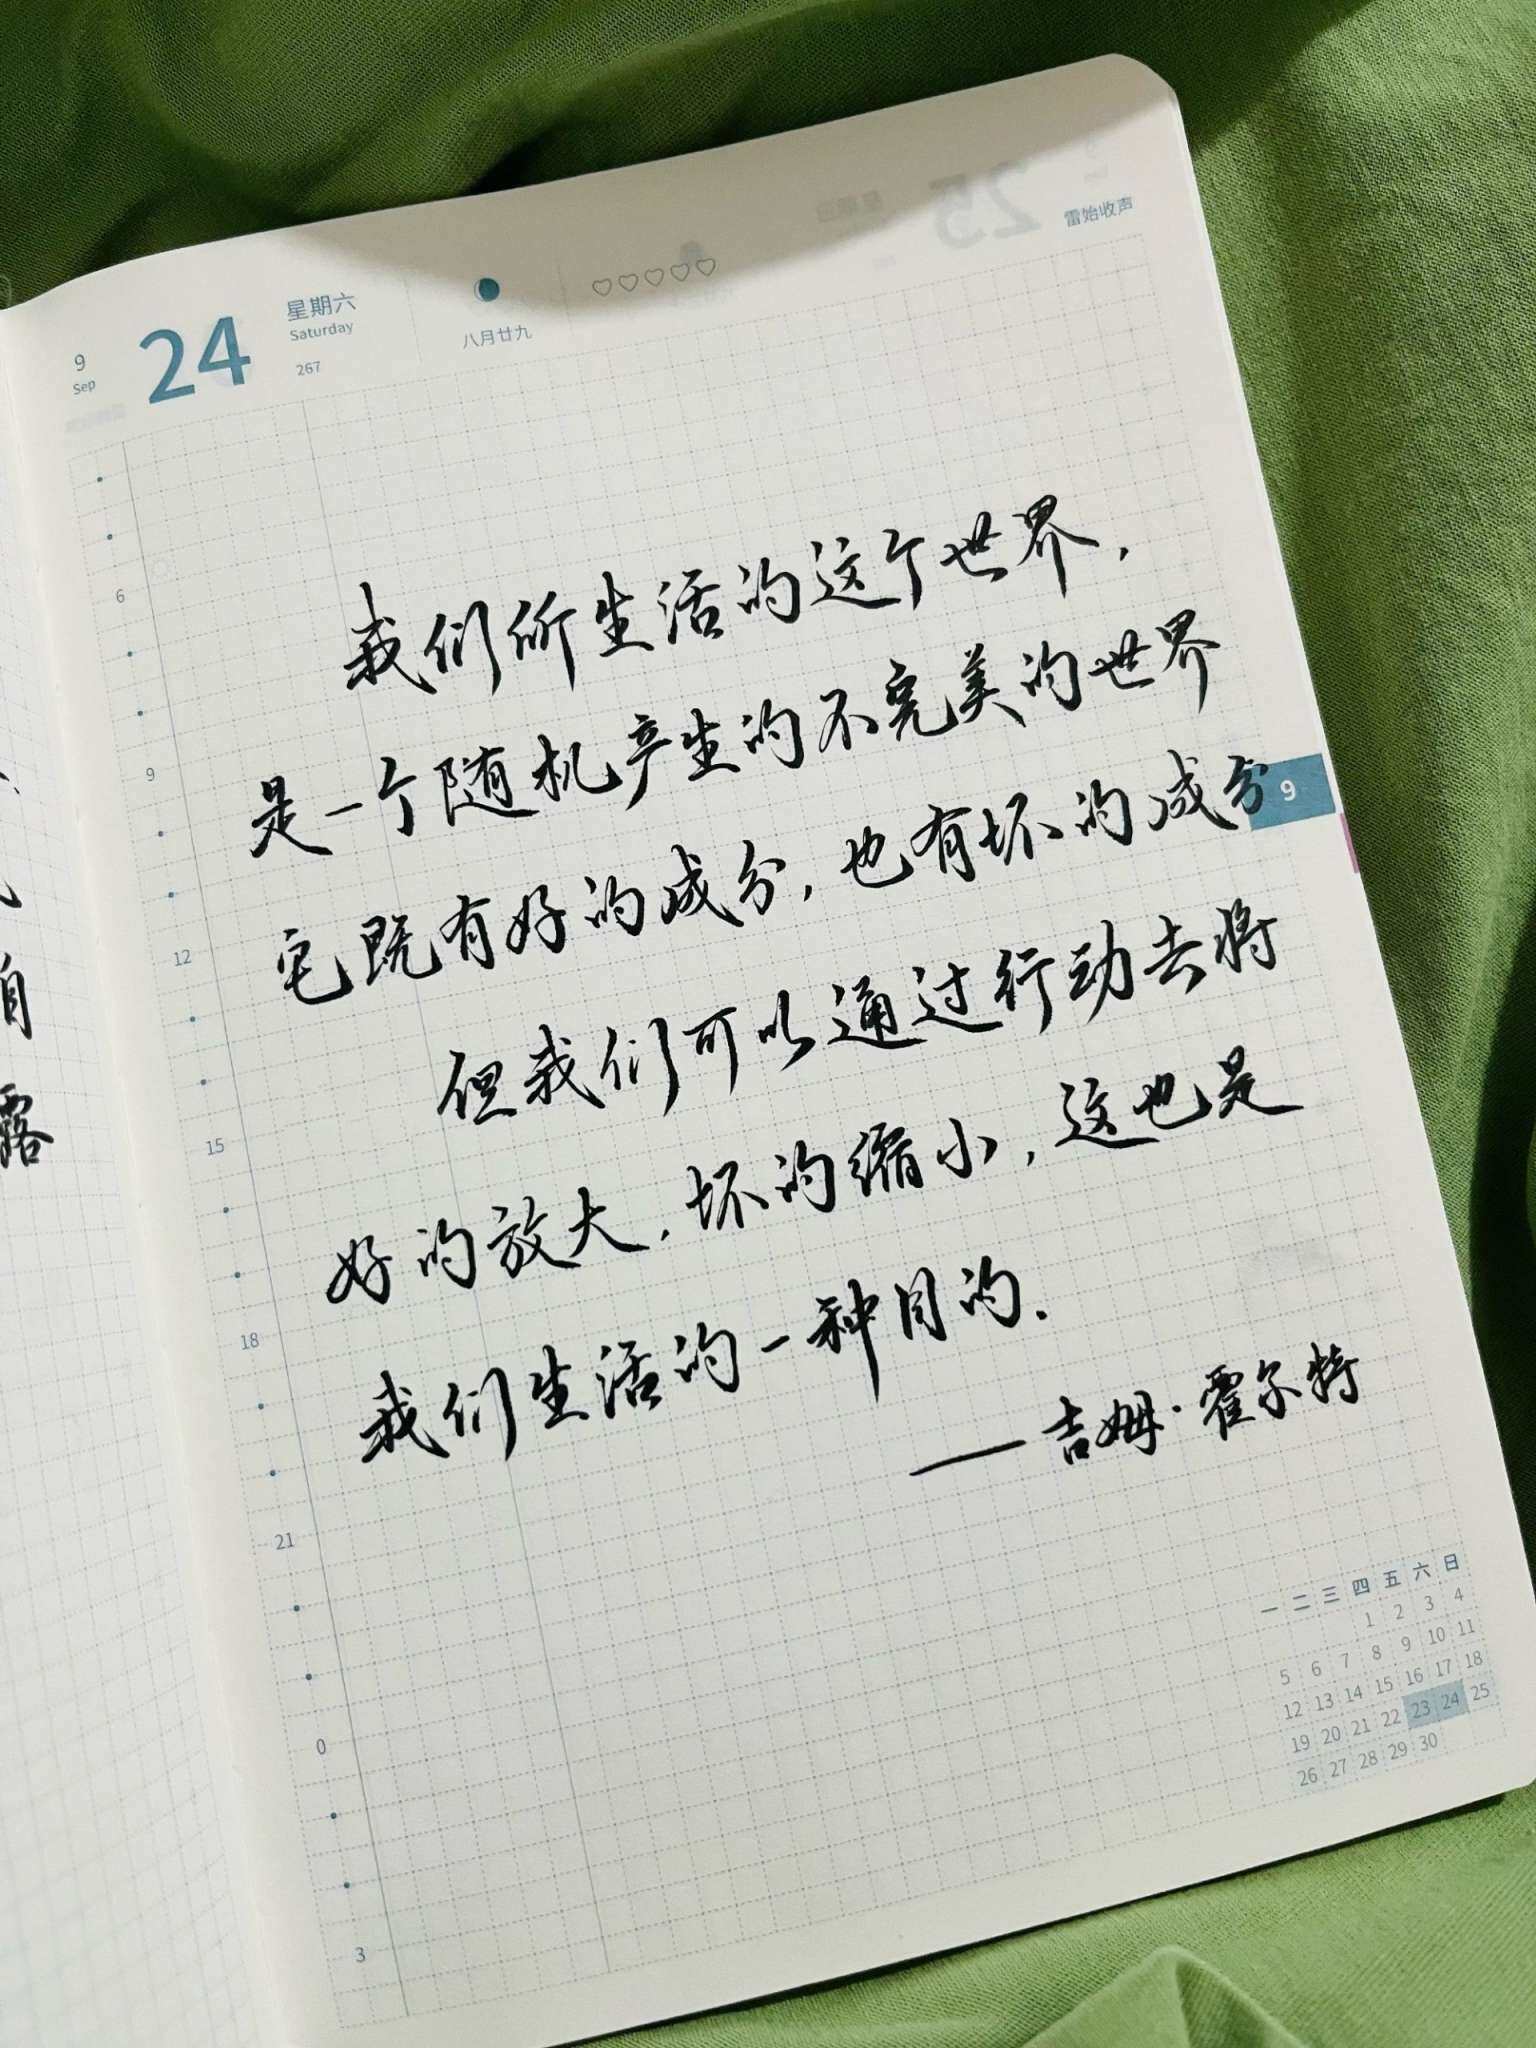 9
Sep
24
星期六
Saturday
267
八月廿九
雷始收声
25
6
9
12
15
18
21
0
3
我们所生活的这个世界，
是一个随机产生的不完美的世界
它既有好的成分，也有坏的成分
但我们可以通过行动去将
好的放大，坏的缩小，这也是
我们生活的一种目的.
——吉姆·霍尔特
9
自
露
一 二 三 四 五 六 日
1 2 3 4
5 6 7 8 9 10 11
12 13 14 15 16 17 18
19 20 21 22 23 24 25
26 27 28 29 30